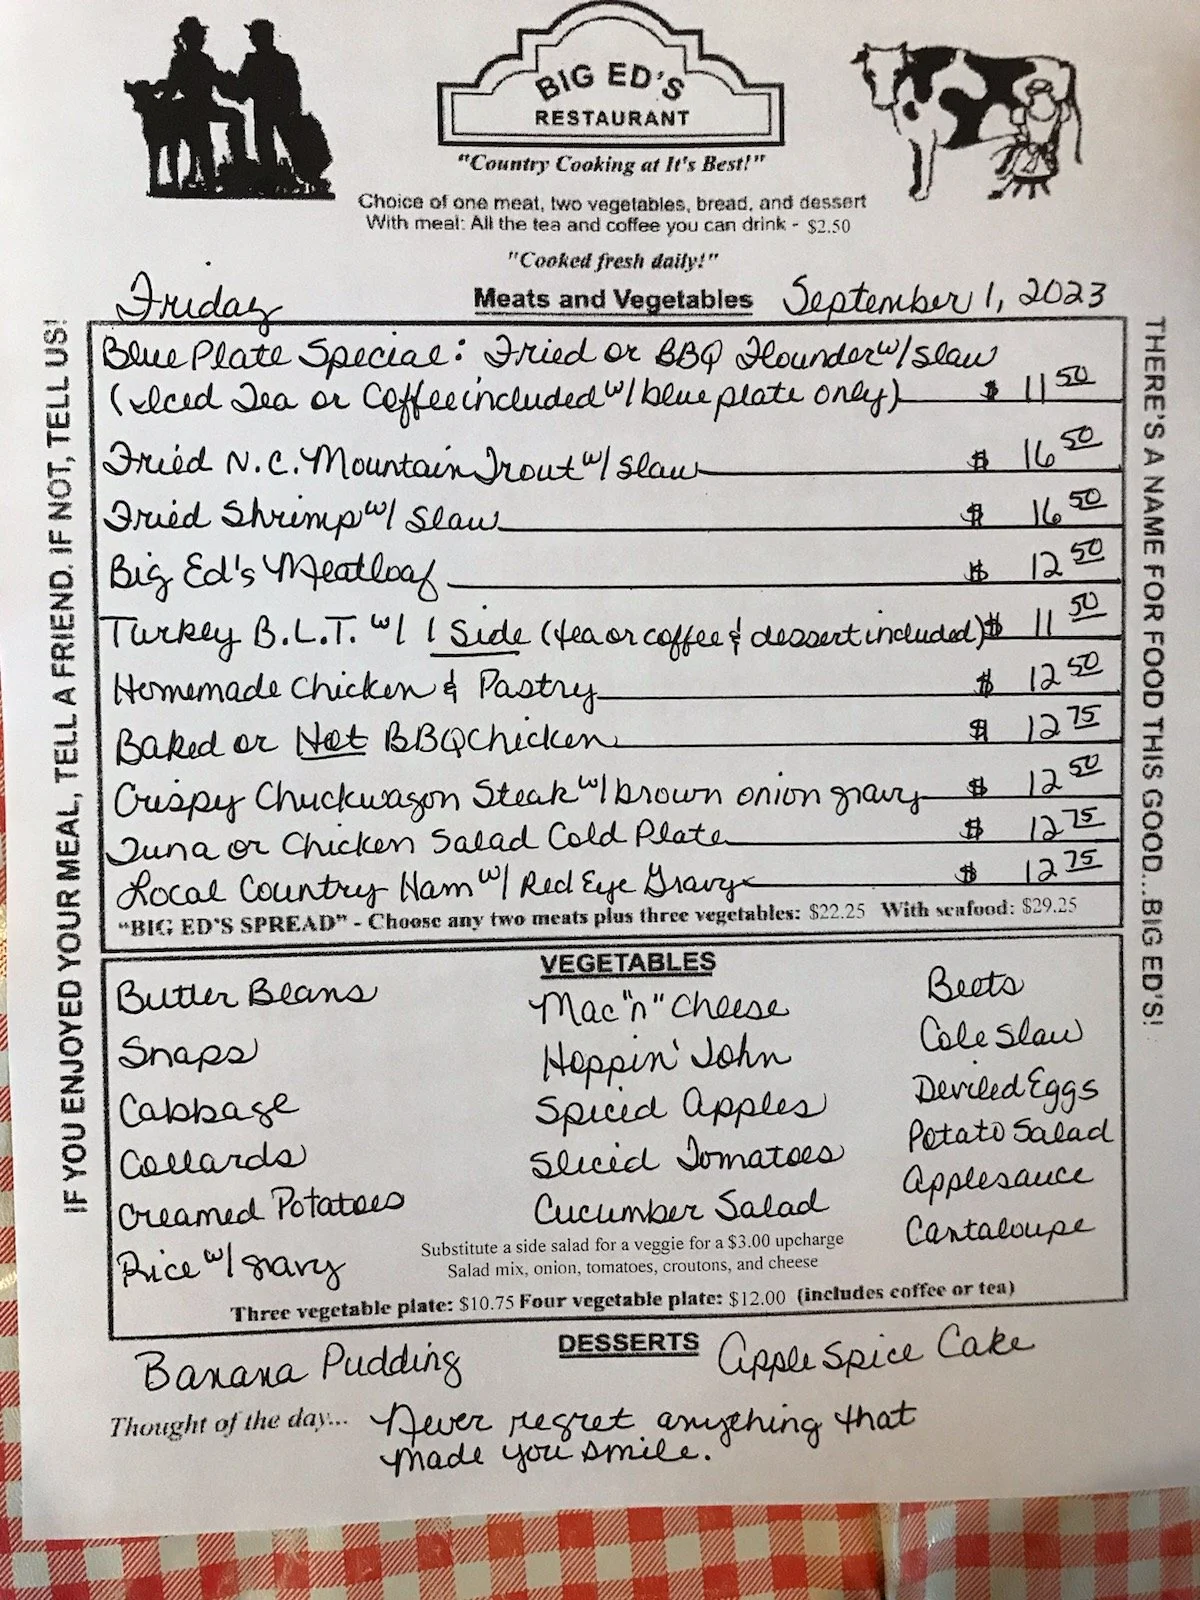 BIG ED'S
RESTAURANT
"Country Cooking at It's Best!"
Choice of one meat, two vegetables, bread, and dessert
With meal: All the tea and coffee you can drink - $2.50
"Cooked fresh daily!"
Friday Meats and Vegetables September 1, 2023
IF YOU ENJOYED YOUR MEAL, TELL A FRIEND. IF NOT, TELL US!
Blue Plate Special: Fried or BBQ Flounder w/ slaw
(Iced Tea or Coffee included w/ blue plate only) $ 11 50
Fried N.C. Mountain Trout w/ slaw $ 16 50
Fried Shrimp w/ Slaw $ 16 50
Big Ed's Meatloaf $ 12 50
Turkey B.L.T. w/ 1 Side (tea or coffee & dessert included) $ 11 50
Homemade Chicken & Pastry $ 12 50
Baked or Hot BBQ Chicken $ 12 75
Crispy Chuckwagon Steak w/ brown onion gravy $ 12 50
Tuna or Chicken Salad Cold Plate $ 12 75
Local Country Ham w/ Red Eye Gravy $ 12 75
"BIG ED'S SPREAD" - Choose any two meats plus three vegetables: $22.25 With seafood: $29.25
THERE'S A NAME FOR FOOD THIS GOOD...BIG ED'S!
VEGETABLES
Butter Beans Mac "n" Cheese Beets
Snaps Hoppin' John Cole Slaw
Cabbage Spiced Apples Deviled Eggs
Collards Sliced Tomatoes Potato Salad
Creamed Potatoes Cucumber Salad Applesauce
Rice w/ gravy Cantaloupe
Substitute a side salad for a veggie for a $3.00 upcharge
Salad mix, onion, tomatoes, croutons, and cheese
Three vegetable plate: $10.75 Four vegetable plate: $12.00 (includes coffee or tea)
DESSERTS
Banana Pudding Apple Spice Cake
Thought of the day... Never regret anything that
made you smile.